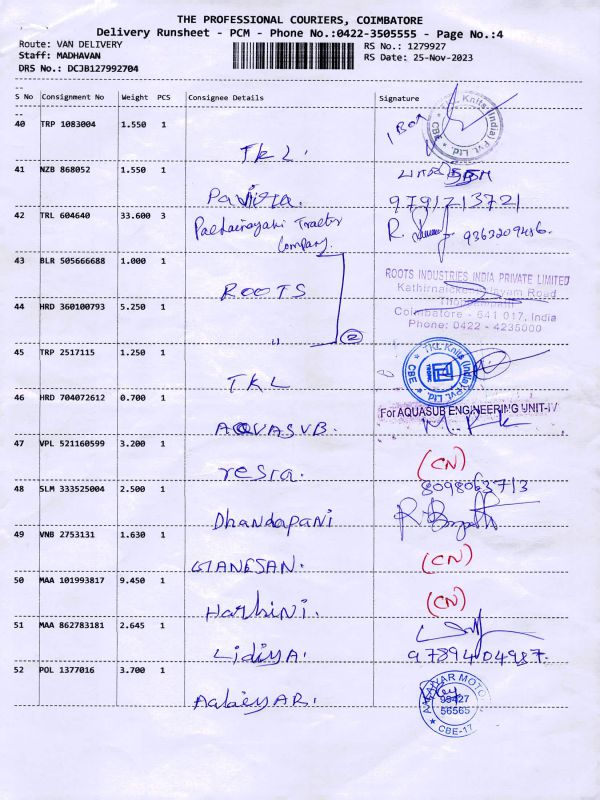 THE PROFESSIONAL COURIERS, COIMBATORE
Delivery Runsheet - PCM - Phone No.:0422-3505555 - Page No.:4
Route: VAN DELIVERY RS No.: 1279927
Staff: MADHAVAN RS Date: 25-Nov-2023
DRS No.: DCJB127992704
S No Consignment No Weight PCS Consignee Details Signature
40 TRP 1083004 1.550 1
TKL Knits (India) Pvt. Ltd. * CBE *
TKL.
41 NZB 868052 1.550 1
Pavithra. 9791213721
42 TRL 604640 33.600 3 Pachainayaki Tractor R. 9363209486.
Company.
43 BLR 505666688 1.000 1
ROOTS
ROOTS INDUSTRIES INDIA PRIVATE LIMITED
Coimbatore - 641 017, India
Phone: 0422 - 4235000
44 HRD 360100793 5.250 1
" 2
45 TRP 2517115 1.250 1
TKL Knits (India) Pvt. Ltd. * CBE *
TKL
46 HRD 704072612 0.700 1
For AQUASUB ENGINEERING UNIT-IV
AQUASUB.
47 VPL 521160599 3.200 1
(CN)
48 SLM 333525004 2.500 1 8098063713
Dhandapani
49 VNB 2753131 1.630 1
GANESAN. (CN)
50 MAA 101993817 9.450 1
Harhini. (CN)
51 MAA 862783181 2.645 1
Lidiya. 9789404987.
52 POL 1377016 3.700 1
98427
56565
* CBE-17